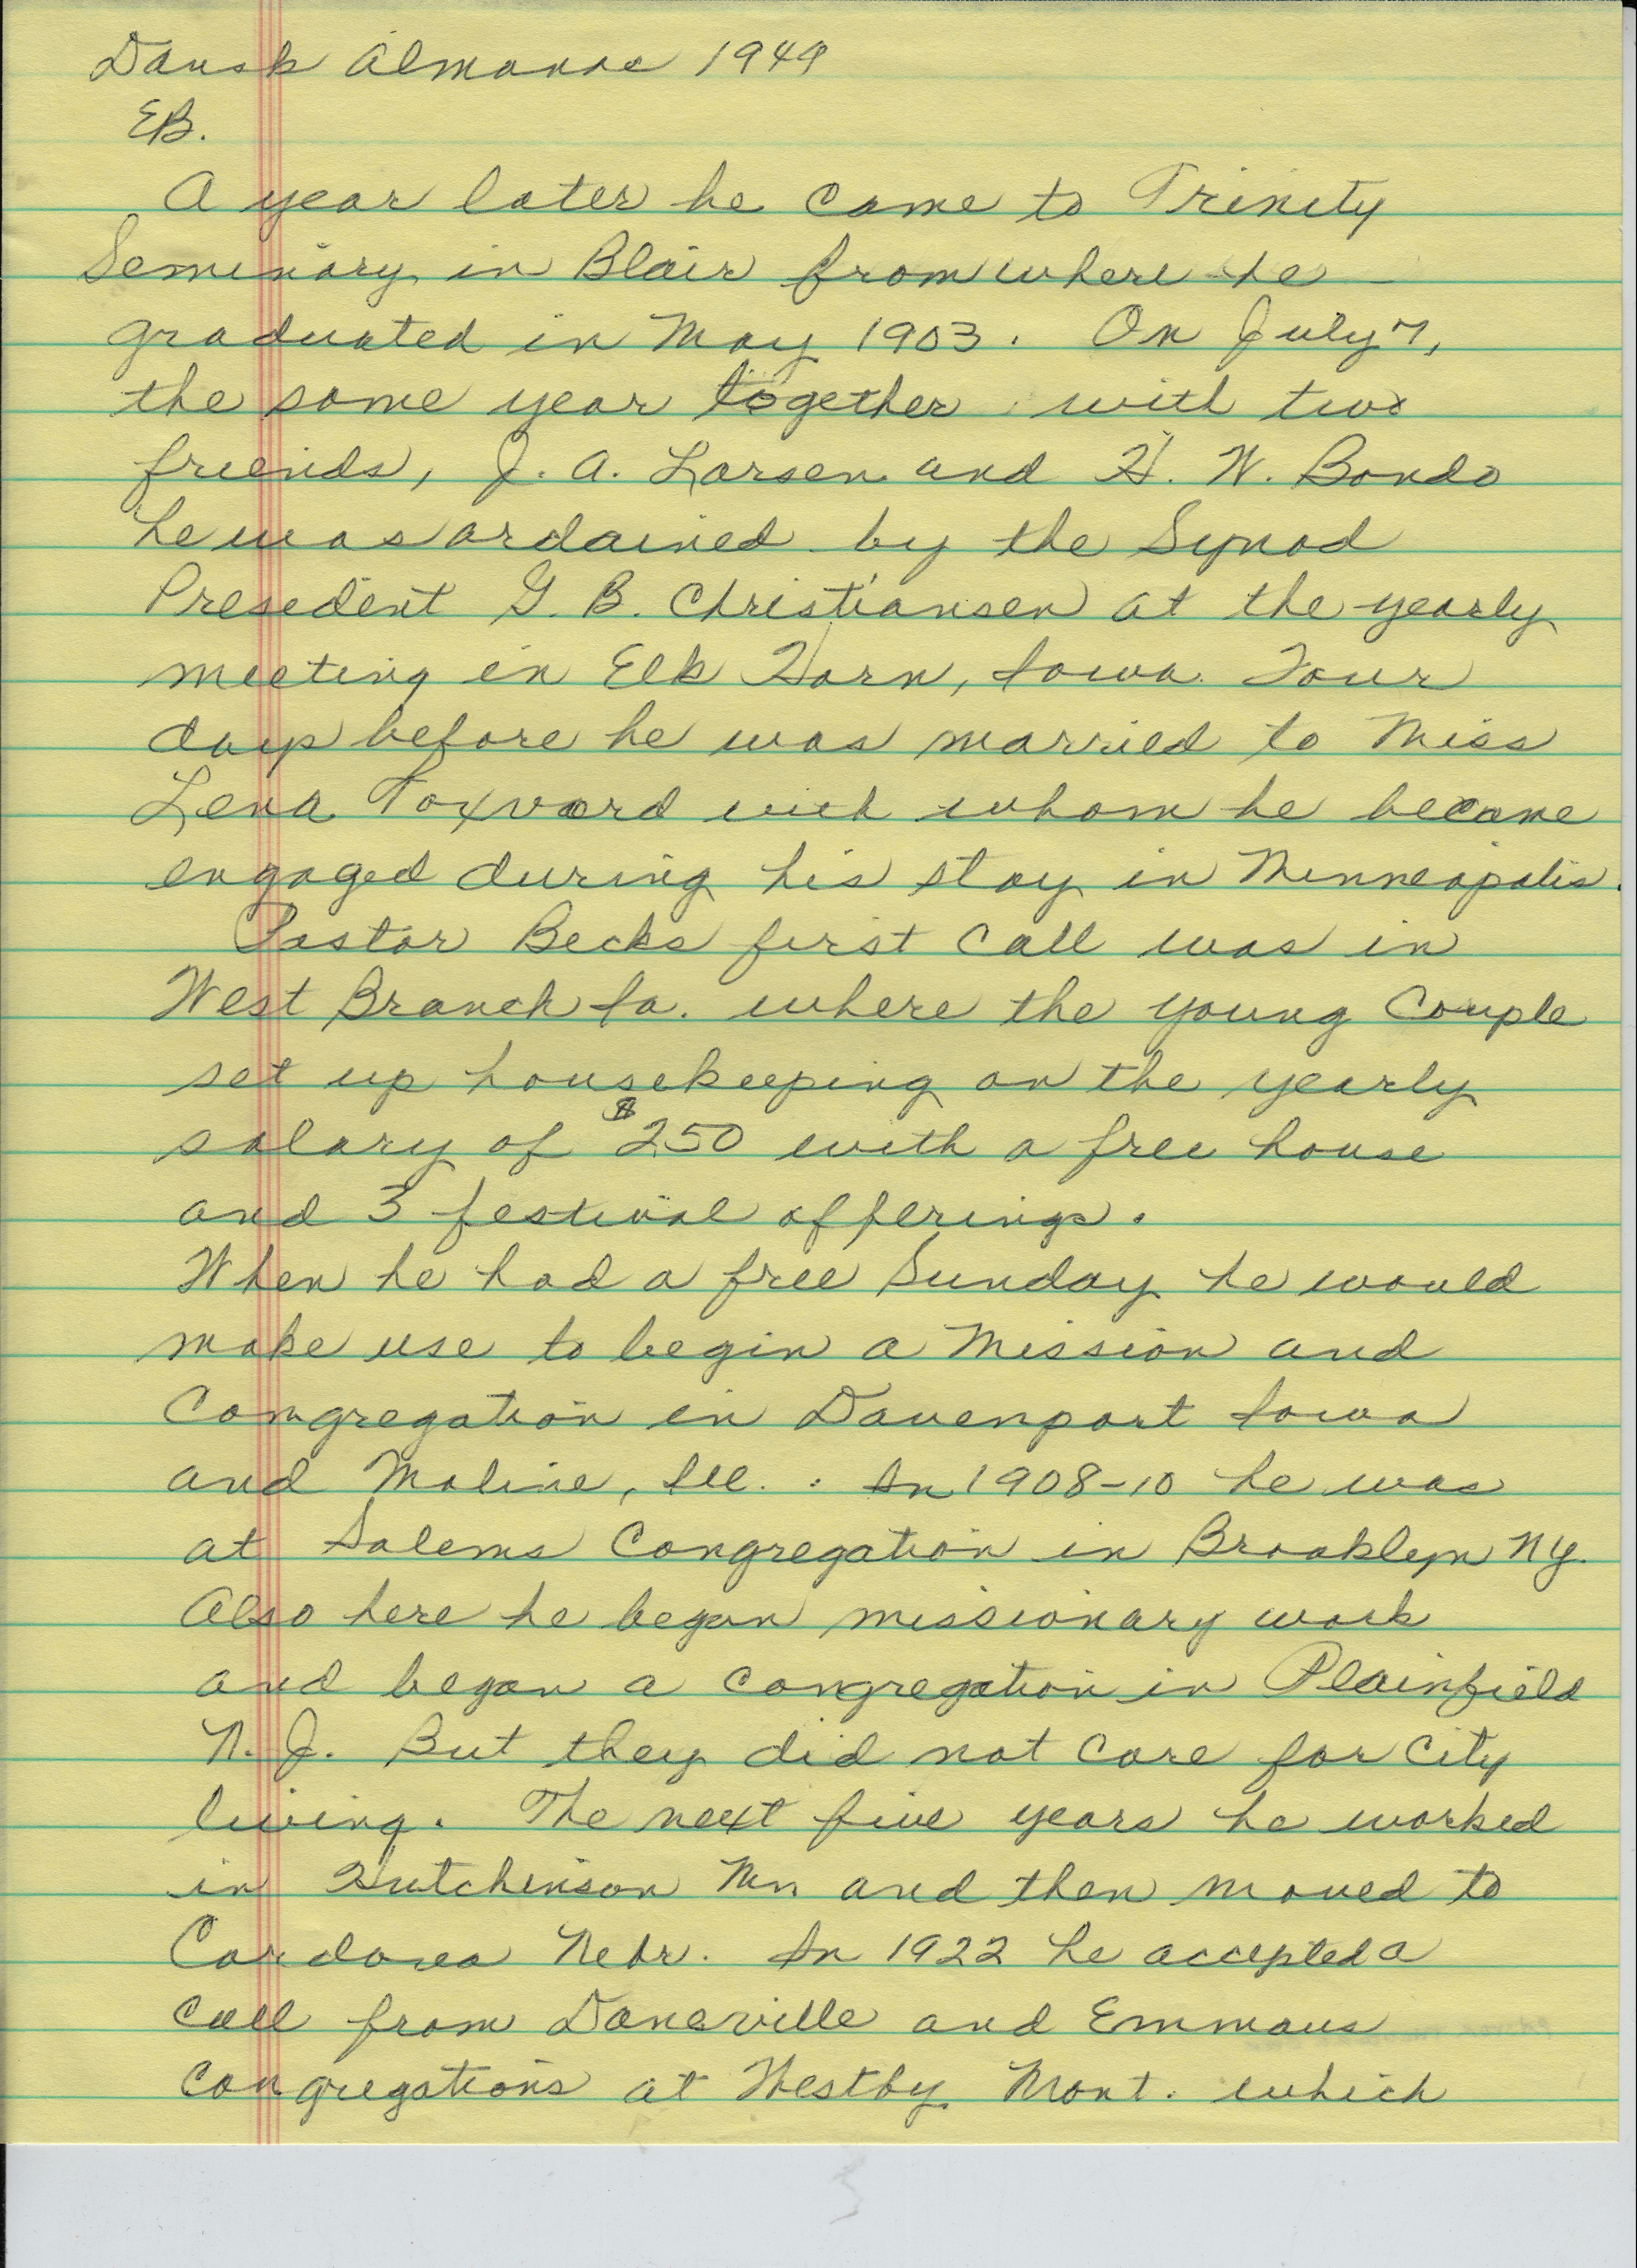 Dansk Almanac 1949
EB.
A year later he came to Trinity
Seminary in Blair from where he
graduated in May 1903. On July 7,
the same year together with two
friends, J. A. Larsen and H. W. Bondo
he was ordained by the Synod
President G. B. Christiansen at the yearly
meeting in Elk Horn, Iowa. Four
days before he was married to Miss
Lena Toxvard with whom he became
engaged during his stay in Minneapolis.
Pastor Becks first call was in
West Branch Ia. where the young couple
set up housekeeping on the yearly
salary of $250 with a free house
and 3 festival offerings.
When he had a free Sunday he would
make use to begin a Mission and
Congregation in Davenport Iowa
and Moline, Ill. . In 1908-10 he was
at Salems Congregation in Brooklyn NY.
Also here he began missionary work
and began a congregation in Plainfield
N. J. But they did not care for city
living. The next five years he worked
in Hutchinson Mn and then moved to
Cordova Nebr. In 1922 he accepted a
call from Daneville and Emmaus
congregations at Westby Mont. which